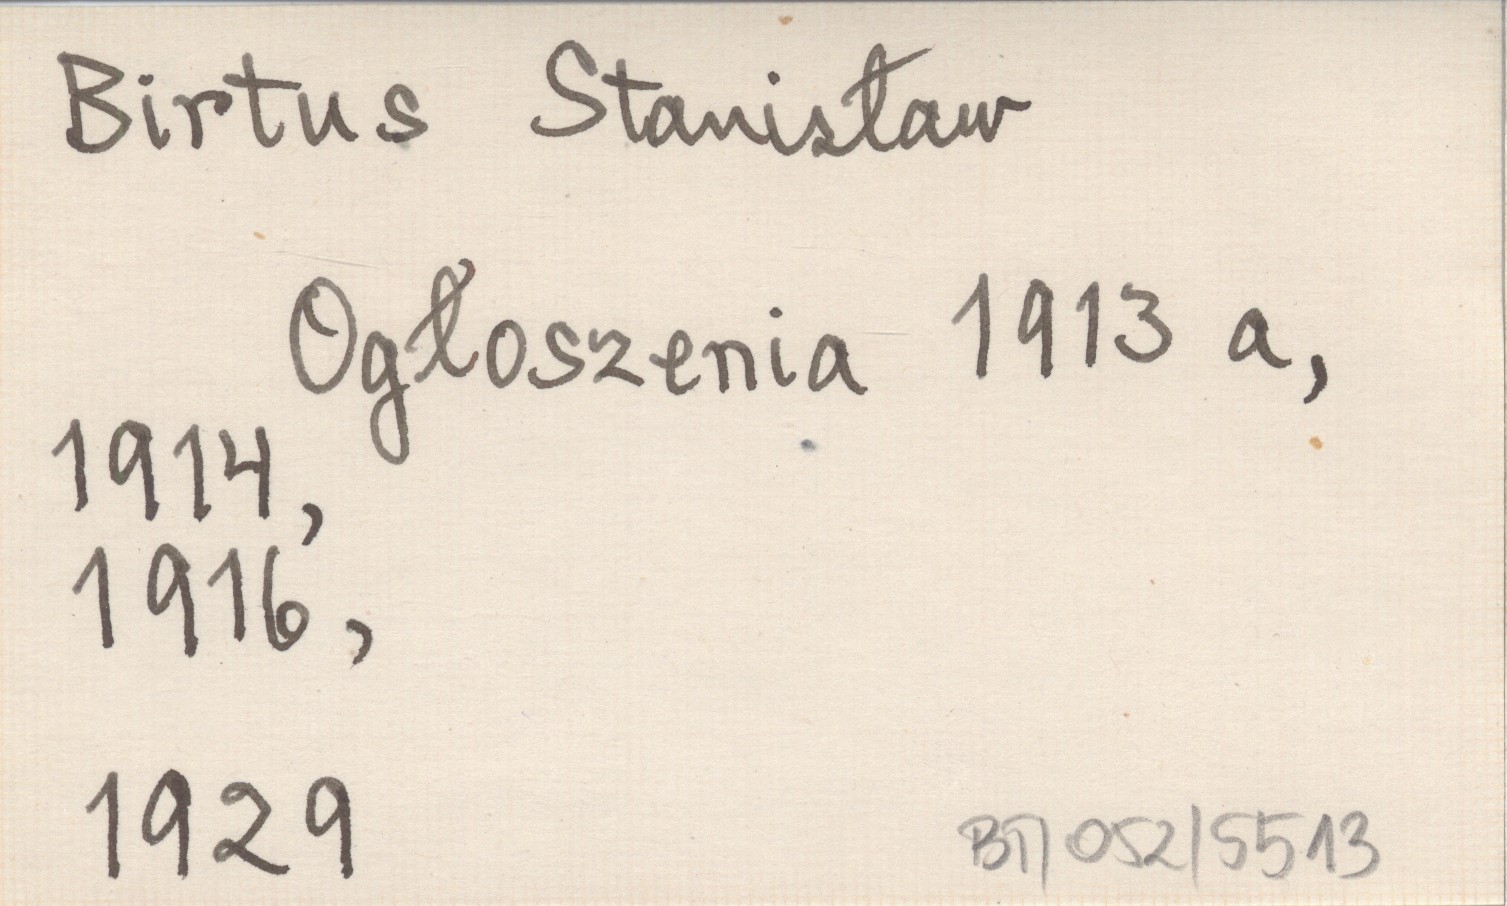 Birtus Stanisław
Ogłoszenia 1913 a,
1914,
1916,
1929
BT/052/5513